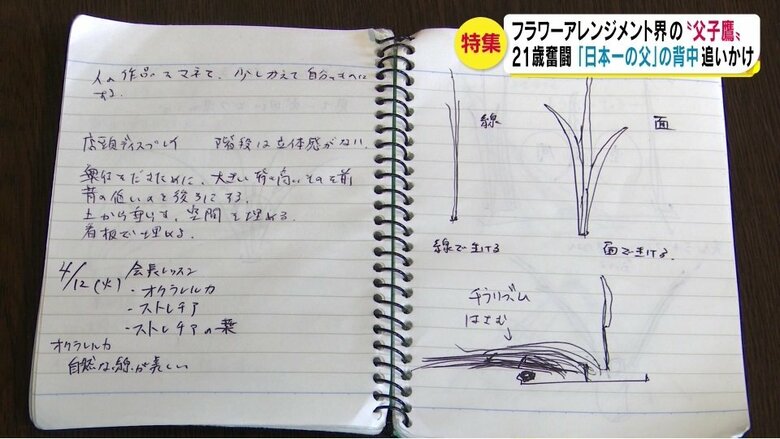 特集
フラワーアレンジメント界の〝父子鷹〟
21歳奮闘「日本一の父」の背中追いかけ
人の作品をマネて、少しかえて自分のものに
する。
店頭ディスプレイ 階段は立体感がない。
奥行をだすために、大きい背の高いものを前
背の低いのを後ろにする。
上から垂らす、空間を埋める。
看板で埋める。
4/12(火) 会長レッスン
・オクラレルカ
・ストレチア
・ストレチアの葉
オクラレルカ
自然な線が美しい
線
面
線で生ける
面で生ける
チラリズム
はさむ